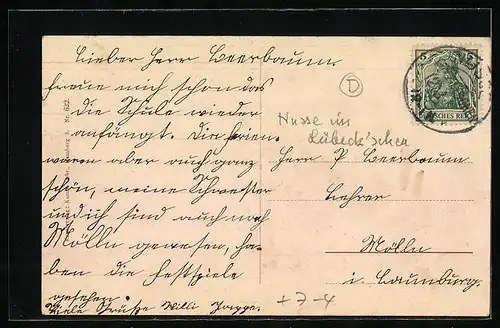 Lieber Herr Beerbaum.
freue mich schon das
die Schule wieder
anfängt. Die Ferien
waren aber auch ganz
schön, meine Schwester
und ich sind auch nach
Mölln gewesen, ha-
ben die Festspiele
gesehen.
Viele Grüße Willi
D
Nusse im
Lübeck'schen
Herr P Beerbaum
Lehrer
Mölln
i. Lauenburg.
+ 7-4
Nr. 622.